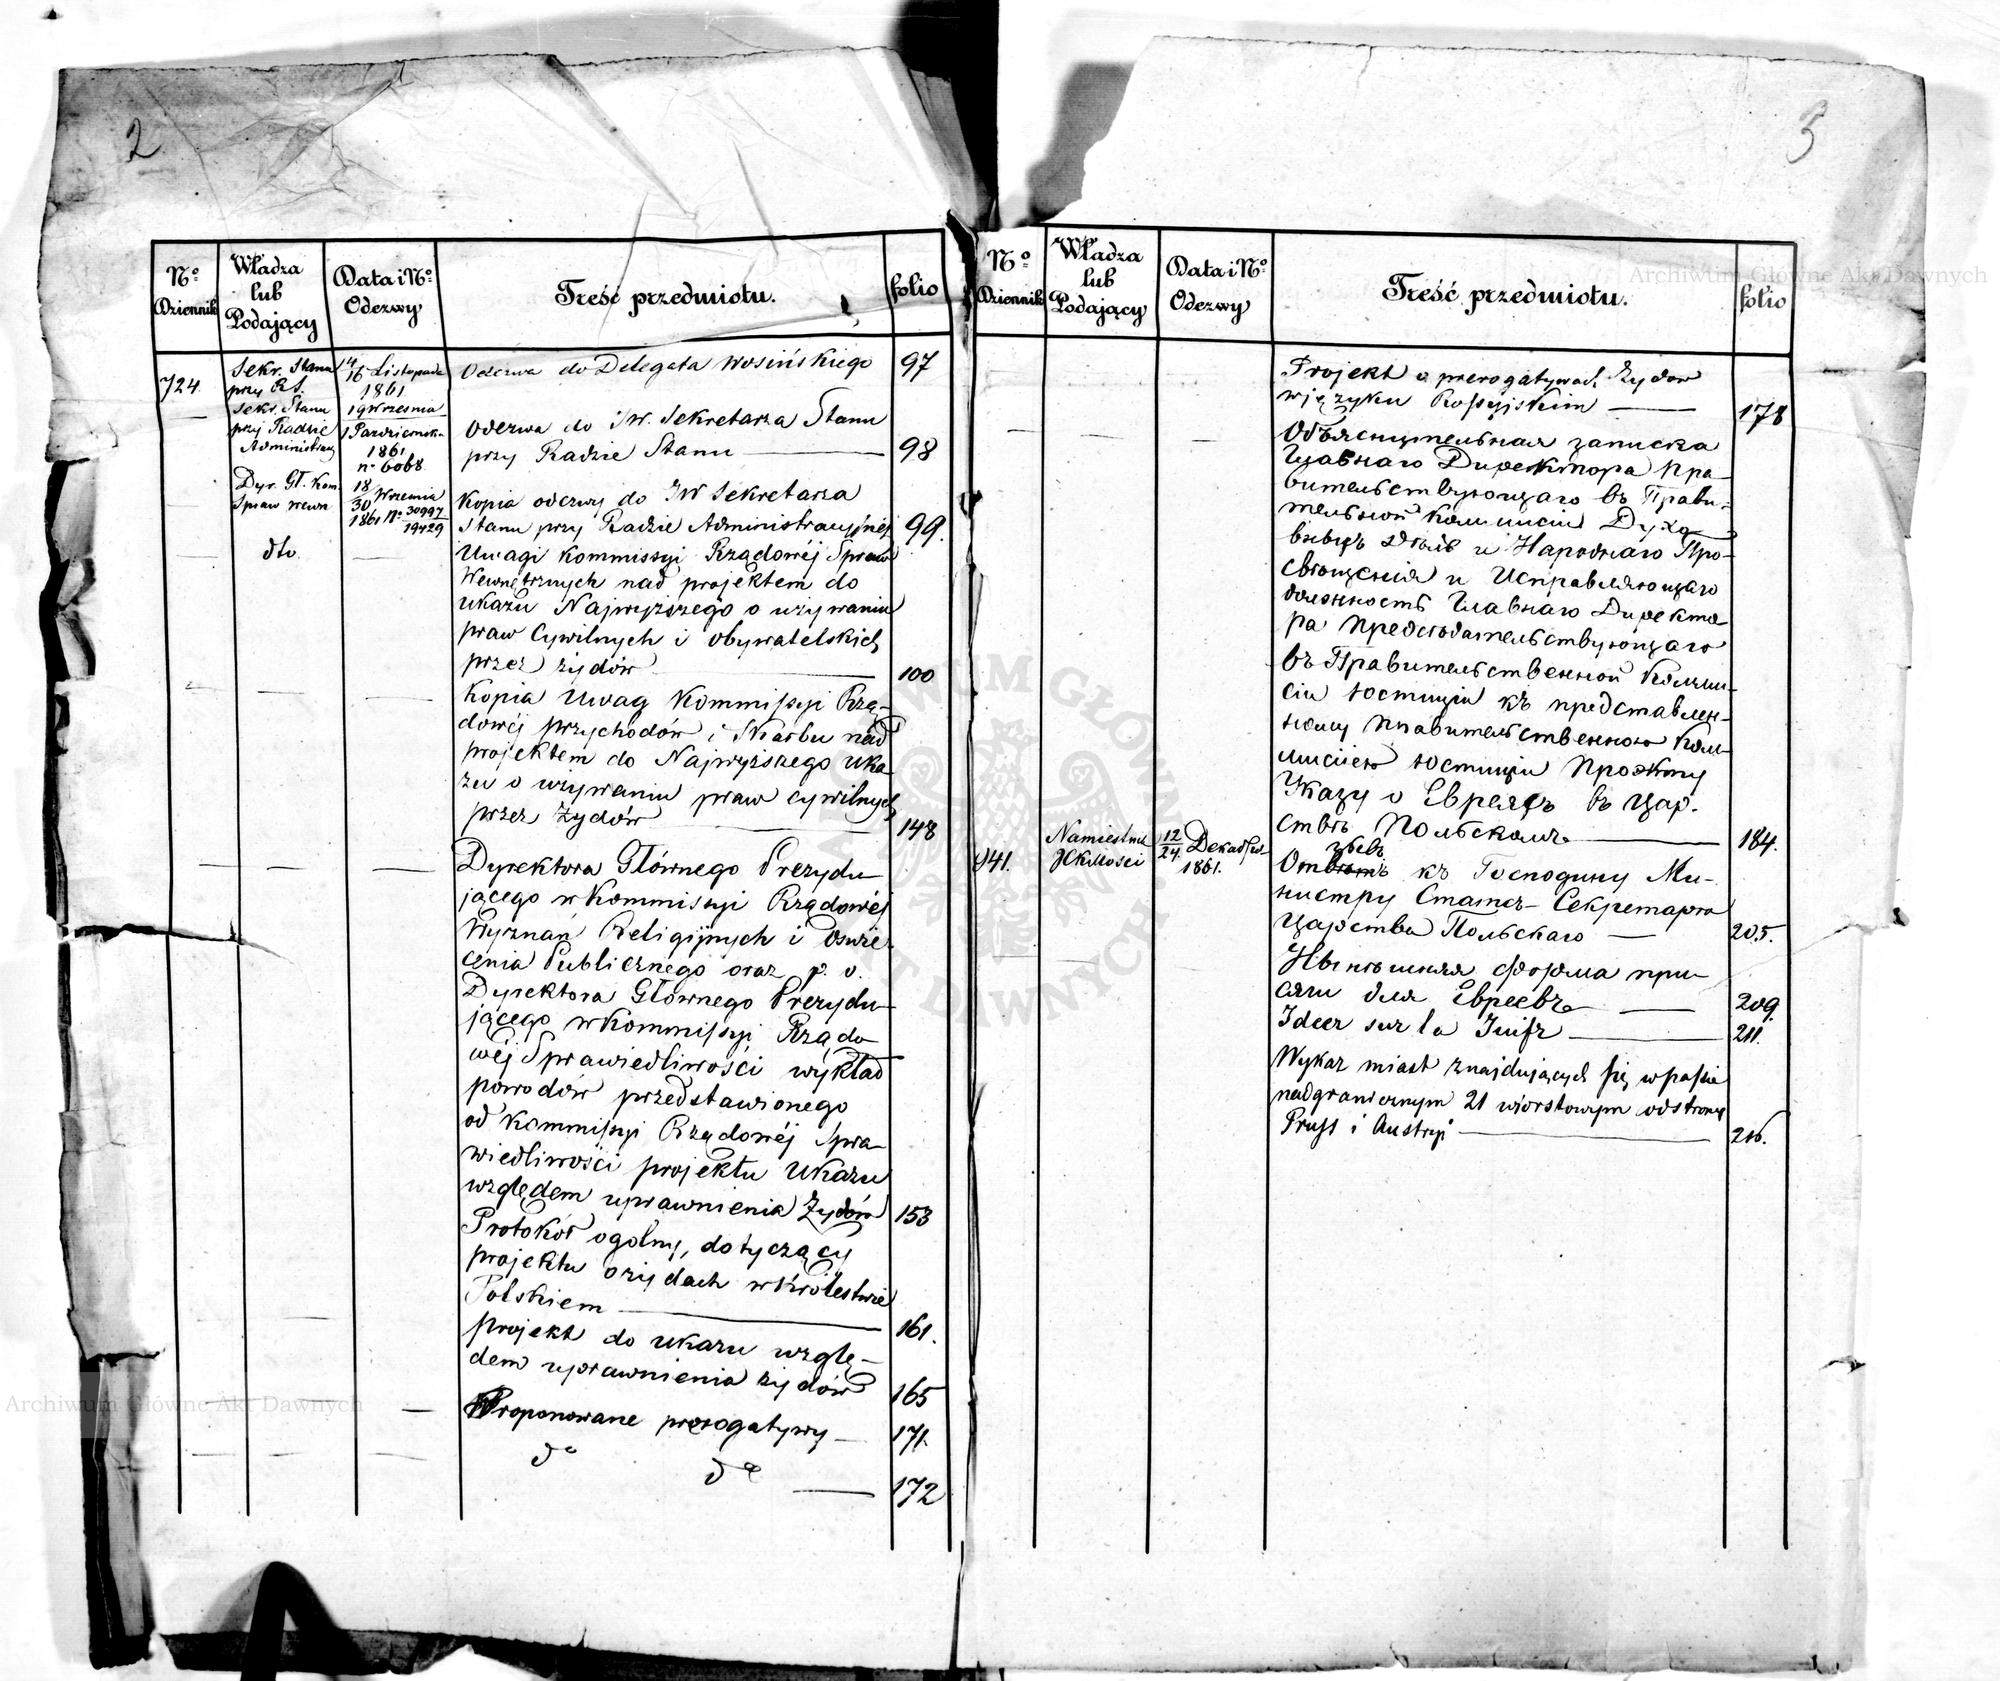 2
No Dziennik
Władza lub Podający
Data i No Odezwy
Treść przedmiotu.
folio
724.
Sekr. Stanu
przy R.S.
14/16 Listopada
1861
Odezwa do Delegata Wosińskiego 97
Sekr. Stanu
przy Radzie
Administracy
19 Wrzesnia
1 Pazdziernika
1861
no 6068
Odezwa do JW. Sekretarza Stanu
przy Radzie Stanu 98
Dyr. Gł. Kom.
Spraw wewn
18/30 Wrzesnia
1861 No 30997/19429
Kopia odezwy do JW Sekretarza
Stanu przy Radzie Administracyjnéj 99.
dto.
Uwagi Kommissyi Rządowéj Spraw
Wewnętrznych nad projektem do
ukazu Najwyższego o używaniu
praw Cywilnych i obywatelskich
przez żydów 100
Kopia Uwag Kommissyi Rzą-
dowéj przychodów i Skarbu nad
projektem do Najwyższego Uka-
zu o używaniu praw cywilnych
przez Żydów 148
Dyrektora Głównego Prezydu-
jącego w Kommissyi Rządowéj
Wyznań Religijnych i Oswie-
cenia Publicznego oraz p. o.
Dyrektora Głównego Prezydu-
jącego w Kommissyi Rządo-
wéj Sprawiedliwości wykład
powodów przedstawionego
od Kommissyi Rządowéj Spra-
wiedliwości projektu Ukazu
względem uprawnienia Żydów 153
Protokół ogolny, dotyczący
projektu o żydach w Królestwie
Polskiem 161.
projekt do ukazu wzglę-
dem uprawnienia żydów 165
Proponowane prerogatywy 171.
do do 172
3
No Dziennik
Władza lub Podający
Data i No Odezwy
Treść przedmiotu.
folio
Projekt o prerogatywach Żydow
w języku Rossyjskim 178
Объяснительная записка
Главнаго Директора Пред-
вительствующаго въ Прави-
тельной Коммисіи Духо-
вныхъ дѣлъ и Народнаго Про-
свѣщенія и Исправляющаго
должность Главнаго Директо-
ра Предсѣдательствующаго
въ Правительственной Коммис-
сіи Юстиціи къ представлен-
ному Правительственною Ком-
мисіею Юстиціи Проэкту
Указу о Евреяхъ въ Цар-
ствѣ Польскомъ 184.
941.
Namiestnik
JCKMości
12/24.
1861.
къ Господину Ми-
нистру Статсъ-Секретарю
Царства Польскаго 205.
Нынѣшняя форма при-
сяги для Евреевъ 209.
Idées sur la Juifs 211.
Wykaz miast znajdujących się w pasie
nadgranicznym 21 wiorstowym od strony
Pruss i Austryi 216.
Archiwum Główne Akt Dawnych
Archiwum Główne Akt Dawnych
ARCHIWUM GŁÓWNE AKT DAWNYCH